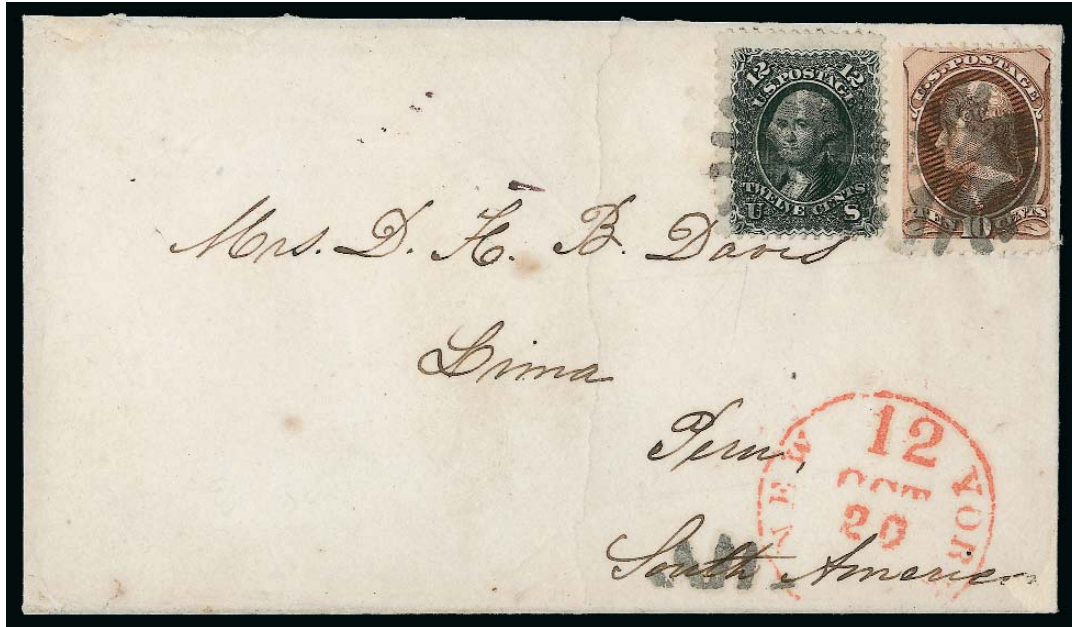 12 12
U.S. POSTAGE
TWELVE CENTS
U S
U.S. POSTAGE
TEN 10 CENTS
Mrs. D. H. B. Davis
Lima
Peru,
South America
NEW YOR
12
OCT
20